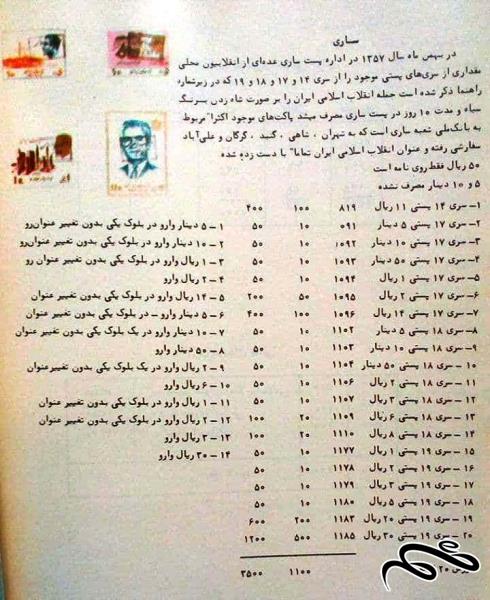 ساری
در بهمن ماه سال ۱۳۵۷ در اداره پست ساری عده‌ای از انقلابیون محلی
مقداری از سری‌های پستی موجود را از سری ۱۴ و ۱۷ و ۱۸ و ۱۹ که در زیر شماره
راهنما ذکر شده است جمله انقلاب اسلامی ایران را بر صورت شاه زدن بسرنگ
سیاه و مدت ۱۰ روز در پست ساری مصرف میشد پاکت‌های موجود اکثرا" مربوط
به بانک ملی شعبه ساری است که به تهران ، شاهی ، گنبد ، گرگان و علی‌آباد
سفارشی رفته و عنوان انقلاب اسلامی ایران تماما" با دست زده شده
۵۰ ریال فقط روی نامه است
۵ و ۱۰ دینار مصرف نشده
۱ـ سری ۱۴ پستی ۱۱ ریال ۸۱۹ ۱۰۰ ۴۰۰
۲ـ سری ۱۷ پستی ۵ دینار ۰۹۱ ۱۰ ۵۰ ۱ ـ ۵ دینار وارو در بلوک یکی بدون تغییر عنوان‌رو
۳ـ سری ۱۷ پستی ۱۰ دینار ۱۰۹۲ ۱۰ ۵۰ ۲ ـ ۱۰ دینار وارو در بلوک یکی بدون تغییر عنوان‌رو
۴ـ سری ۱۷ پستی ۵۰ دینار ۱۰۹۳ ۱۰ ۵۰ ۳ ـ ۱ ریال وارو در بلوک یکی بدون تغییر عنوان رو
۵ـ سری ۱۷ پستی ۱ ریال ۱۰۹۴ ۱۰ ۵۰ ۴ ـ ۲ ریال وارو
۶ـ سری ۱۷ پستی ۲ ریال ۱۰۹۵ ۵۰ ۲۰۰ ۵ ـ ۱۴ ریال وارو در بلوک یکی بدون تغییر عنوان
۷ـ سری ۱۷ پستی ۱۴ ریال ۱۰۹۶ ۱۰۰ ۴۰۰ ۶ ـ ۵ دینار وارو ـ در بلوک یکی بدون تغییر عنوان
۸ـ سری ۱۸ پستی ۵ دینار ۱۱۰۲ ۱۰ ۵۰ ۷ ـ ۱۰ دینار وارو در یک بلوک یکی بدون تغییر عنوان
۹ـ سری ۱۸ پستی ۱۰ دینار ۱۱۰۳ ۱۰ ۵۰ ۸ ـ ۵۰ دینار وارو
۱۰ ـ سری ۱۸ پستی ۵۰ دینار ۱۱۰۴ ۱۰ ۵۰ ۹ ـ ۲ ریال وارو در یک بلوک یکی بدون تغییر عنوان
۱۱ ـ سری ۱۸ پستی ۲ ریال ۱۱۰۶ ۱۰ ۵۰ ۱۰ ـ ۶ ریال وارو
۱۲ ـ سری ۱۸ پستی ۳ ریال ۱۱۰۷ ۱۰ ۵۰ ۱۱ ـ ۱ ریال وارو در بلوک یکی بدون تغییر عنوان
۱۳ ـ سری ۱۸ پستی ۶ ریال ۱۱۰۹ ۲۰ ۱۰۰ ۱۲ ـ ۲ ریال وارو در بلوک یکی بدون تغییر عنوان
۱۴ ـ سری ۱۸ پستی ۸ ریال ۱۱۱۰ ۲۰ ۱۰۰ ۱۳ ـ ۳ ریال وارو
۱۵ ـ سری ۱۹ پستی ۱ ریال ۱۱۷۷ ۱۰ ۵۰ ۱۴ ـ ۳۰ ریال وارو
۱۶ ـ سری ۱۹ پستی ۲ ریال ۱۱۷۸ ۱۰ ۵۰
۱۷ ـ سری ۱۹ پستی ۳ ریال ۱۱۷۹ ۱۰ ۵۰
۱۸ ـ سری ۱۹ پستی ۵ ریال ۱۱۸۰ ۱۰ ۵۰
۱۹ ـ سری ۱۹ پستی ۲۰ ریال ۱۱۸۳ ۲۰۰ ۶۰۰
۲۰ ـ سری ۱۹ پستی ۳۰ ریال ۱۱۸۵ ۵۰۰ ۱۲۰۰
۲۰ ۱۱۰۰ ۳۵۰۰